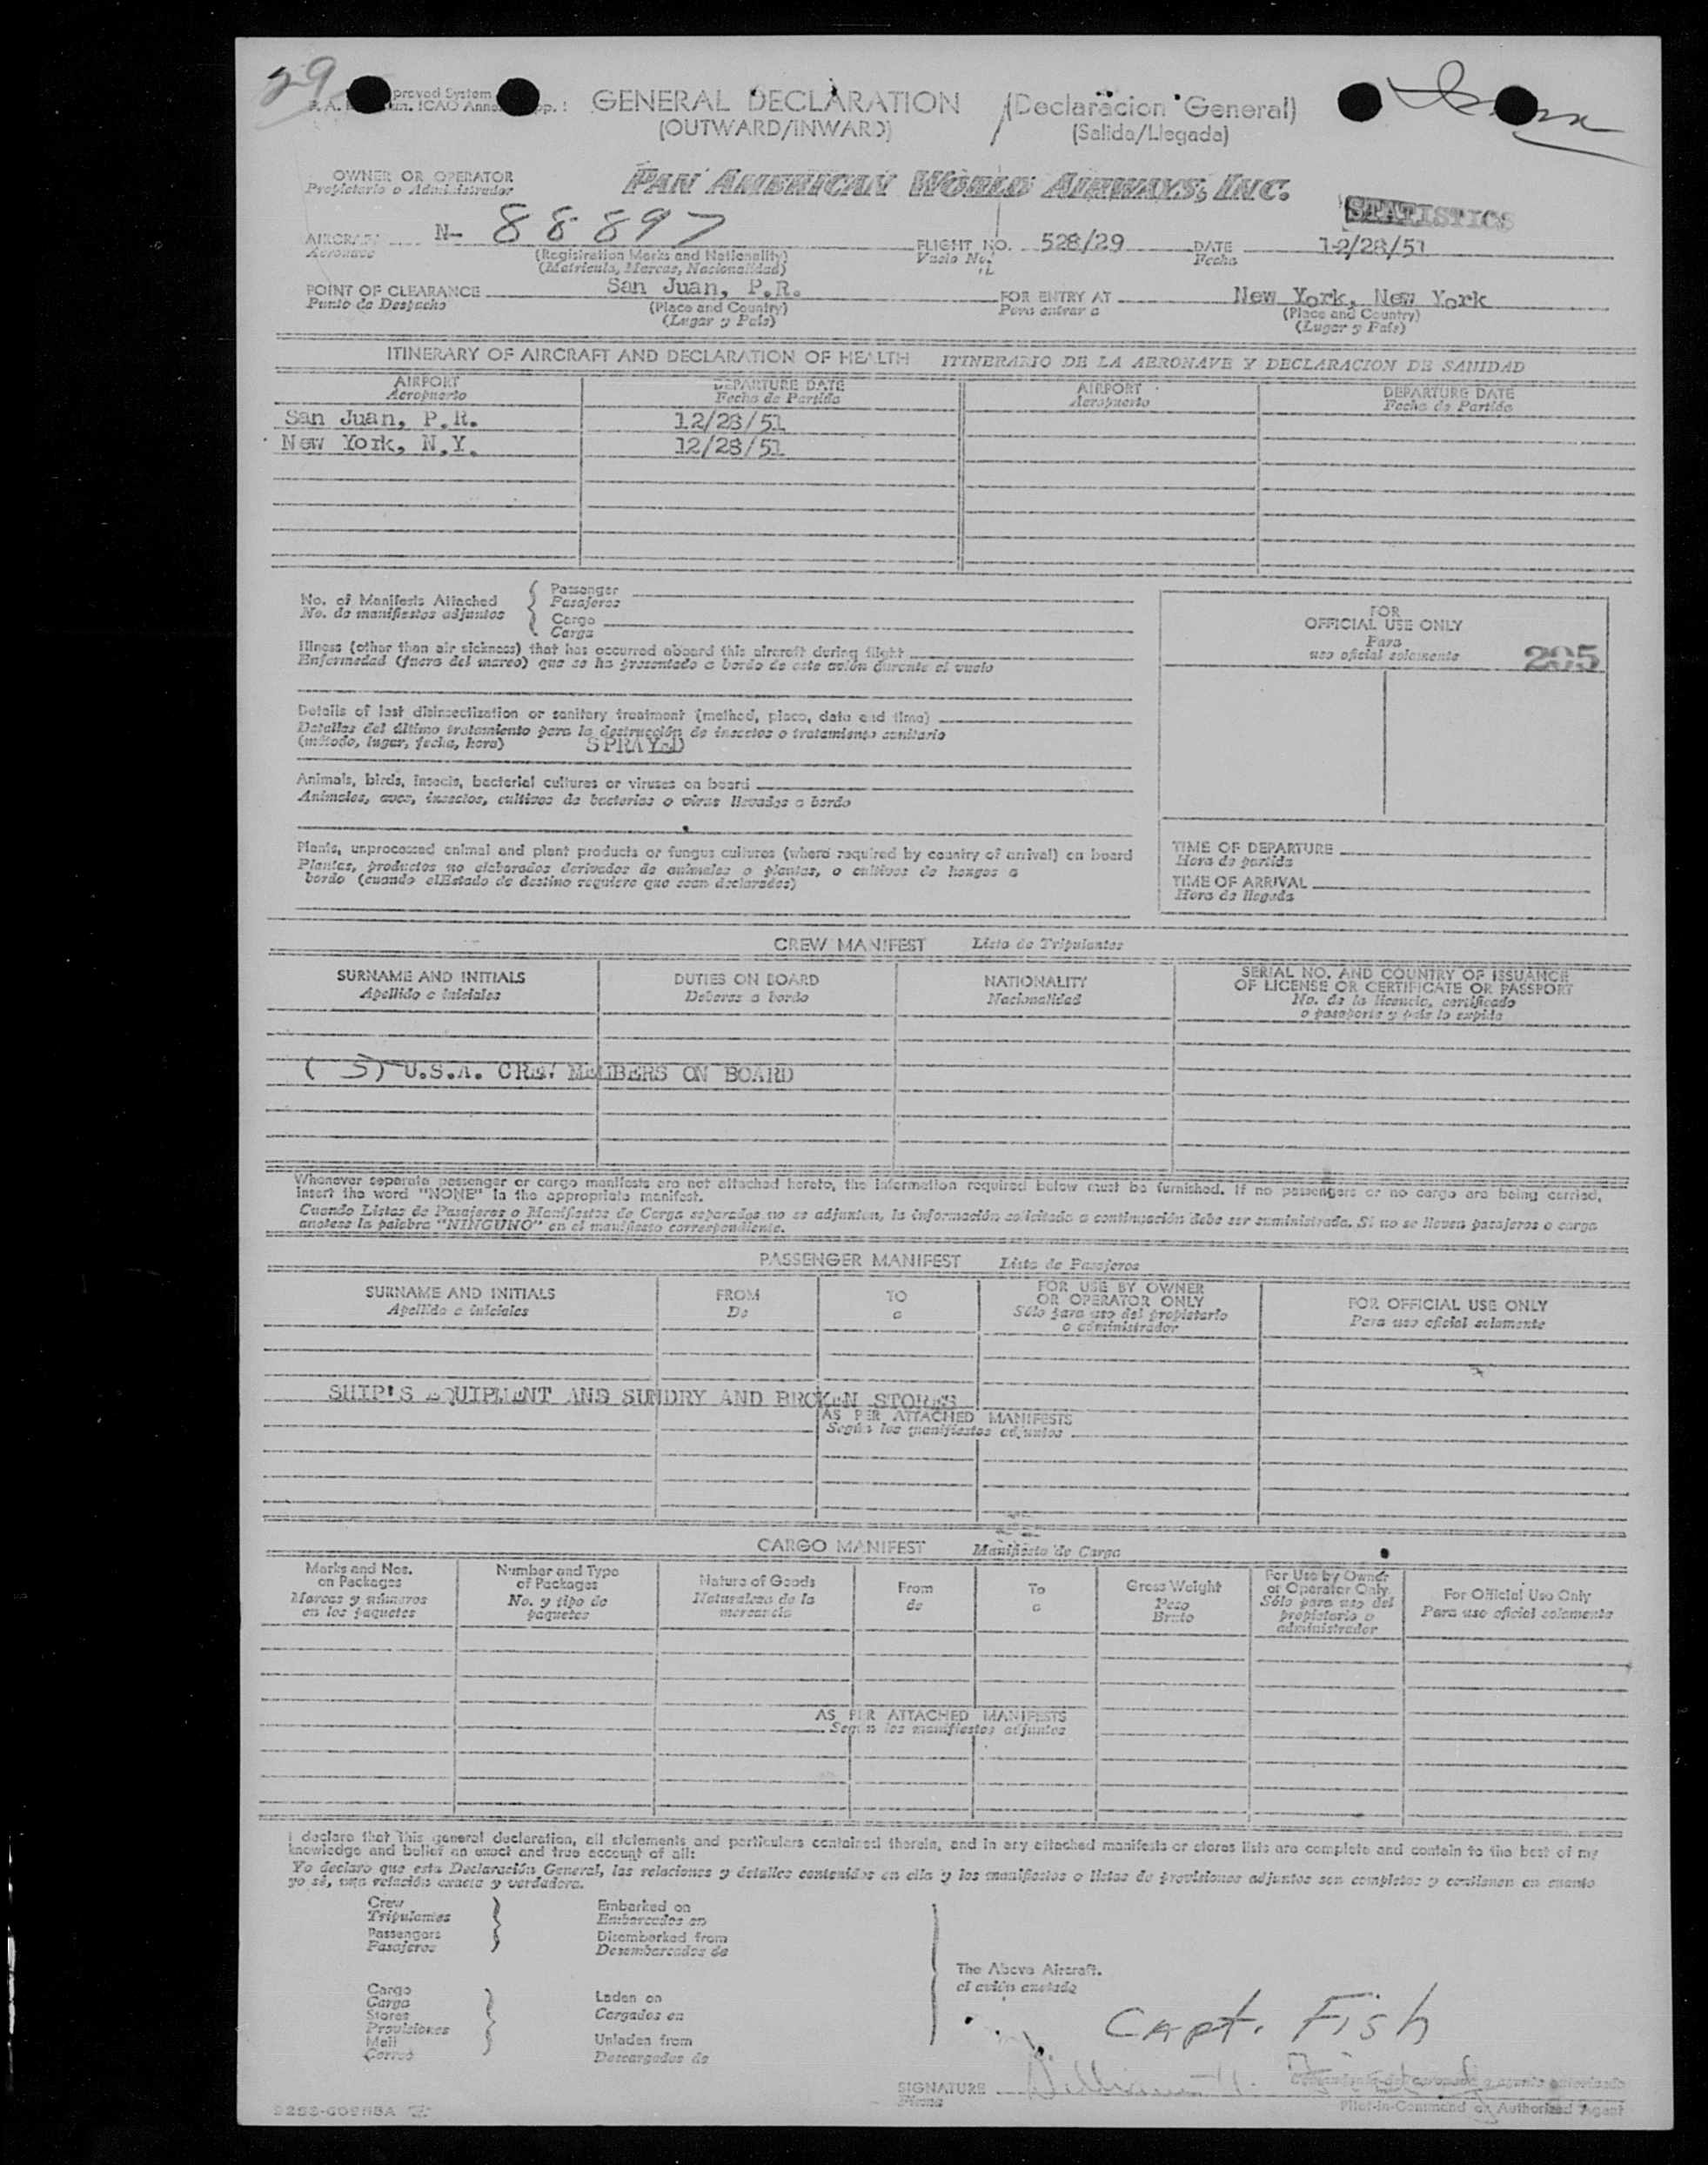 29
GENERAL DECLARATION (Declaracion General)
(OUTWARD/INWARD) (Salida/Llegada)
OWNER OR OPERATOR
Propietario o Administrador
PAN AMERICAN WORLD AIRWAYS, INC.
STATISTICS
AIRCRAFT N- 88897 FLIGHT NO. 528/29 DATE 12/28/51
Aeronave (Registration Marks and Nationality) Vuelo No. Fecha
(Matricula, Marcas, Nacionalidad)
POINT OF CLEARANCE San Juan, P.R. FOR ENTRY AT New York, New York
Punto de Despacho (Place and Country) Para entrar a (Place and Country)
(Lugar y País) (Lugar y País)
ITINERARY OF AIRCRAFT AND DECLARATION OF HEALTH ITINERARIO DE LA AERONAVE Y DECLARACION DE SANIDAD
AIRPORT DEPARTURE DATE AIRPORT DEPARTURE DATE
Aeropuerto Fecha de Partida Aeropuerto Fecha de Partida
San Juan, P.R. 12/28/51
New York, N.Y. 12/28/51
No. of Manifests Attached
No. de manifiestos adjuntos
Passenger
Pasajeros
Cargo
Carga
FOR
OFFICIAL USE ONLY
Para
uso oficial solamente
205
Illness (other than air sickness) that has occurred aboard this aircraft during flight
Enfermedad (fuera del mareo) que se ha presentado a bordo de este avión durante el vuelo
Details of last disinsectization or sanitary treatment (method, place, date and time)
Detalles del último tratamiento para la destrucción de insectos o tratamiento sanitario
(método, lugar, fecha, hora) SPRAYED
Animals, birds, insects, bacterial cultures or viruses on board
Animales, aves, insectos, cultivos de bacterias o virus llevados a bordo
Plants, unprocessed animal and plant products or fungus cultures (where required by country of arrival) on board
Plantas, productos no elaborados derivados de animales o plantas, o cultivos de hongos a
bordo (cuando elEstado de destino requiere que sean declarados)
TIME OF DEPARTURE
Hora de partida
TIME OF ARRIVAL
Hora de llegada
CREW MANIFEST Lista de Tripulantes
SURNAME AND INITIALS DUTIES ON BOARD NATIONALITY SERIAL NO. AND COUNTRY OF ISSUANCE
OF LICENSE OR CERTIFICATE OR PASSPORT
Apellido e iniciales Deberes a bordo Nacionalidad No. de la licencia, certificado
o pasaporte y país lo expide
( 5) U.S.A. CREW MEMBERS ON BOARD
Whenever separate passenger or cargo manifests are not attached hereto, the information required below must be furnished. If no passengers or no cargo are being carried,
insert the word "NONE" in the appropriate manifest.
Cuando Listas de Pasajeros o Manifiestos de Carga separados no se adjunten, la información solicitada a continuación debe ser suministrada. Si no se lleven pasajeros o carga
anotese la palabra "NINGUNO" en el manifiesto correspondiente.
PASSENGER MANIFEST Lista de Pasajeros
SURNAME AND INITIALS FROM TO FOR USE BY OWNER
OR OPERATOR ONLY FOR OFFICIAL USE ONLY
Apellido e iniciales De a Sólo para uso del propietario
o administrador Para uso oficial solamente
SHIP'S EQUIPMENT ANS SUNDRY AND BROKEN STORES
AS PER ATTACHED MANIFESTS
Según los manifiestos adjuntos
CARGO MANIFEST Manifiesto de Carga
Marks and Nos.
on Packages
Marcas y números
en los paquetes
Number and Type
of Packages
No. y tipo de
paquetes
Nature of Goods
Naturaleza de la
mercancía
From
de
To
a
Gross Weight
Peso
Bruto
For Use by Owner
or Operator Only
Sólo para uso del
propietario o
administrador
For Official Use Only
Para uso oficial solamente
AS PER ATTACHED MANIFESTS
Según los manifiestos adjuntos
I declare that this general declaration, all statements and particulars contained therein, and in any attached manifests or stores lists are complete and contain to the best of my
knowledge and belief an exact and true account of all:
Yo declaro que esta Declaración General, las relaciones y detalles contenidos en ella y los manifiestos o listas de provisiones adjuntos son completos y contienen en cuanto
yo sé, una relación exacta y verdadera.
Crew
Tripulantes
Passengers
Pasajeros
Embarked on
Embarcados en
Disembarked from
Desembarcados de
Cargo
Carga
Stores
Provisiones
Mail
Correo
Laden on
Cargados en
Unladen from
Descargados de
The Above Aircraft.
el avión anotado
Capt. Fish
SIGNATURE William H.
Firma
Pilot-in-Command or Authorized Agent